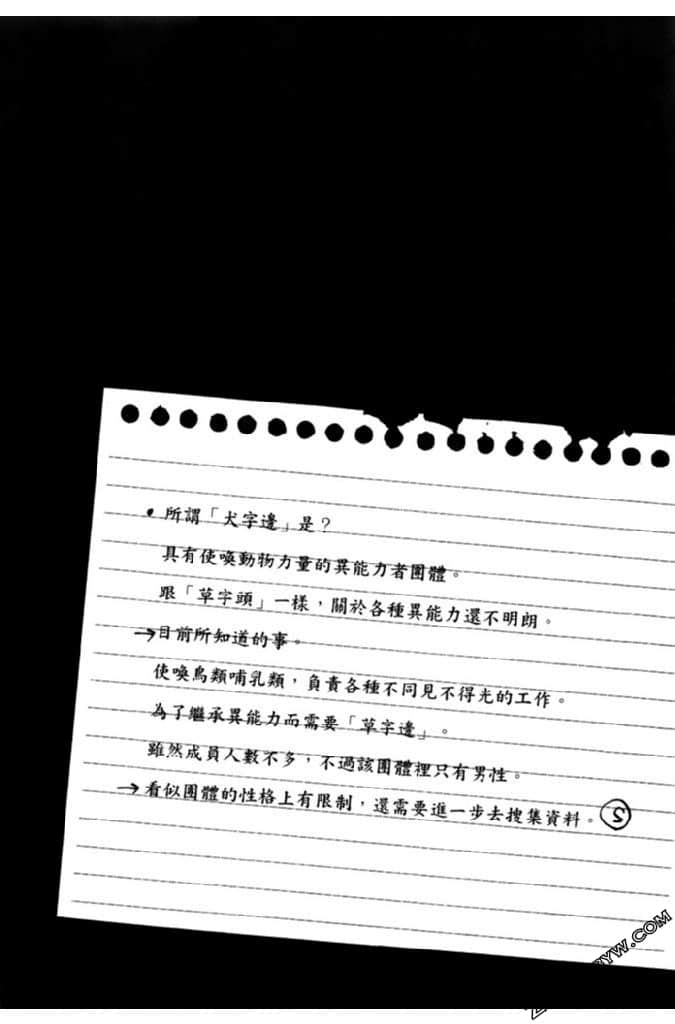 • 所謂「犬字邊」是？
具有使喚動物力量的異能力者團體。
跟「草字頭」一樣，關於各種異能力還不明朗。
→目前所知道的事。
使喚鳥類哺乳類，負責各種不同見不得光的工作。
為了繼承異能力而需要「草字邊」。
雖然成員人數不多，不過該團體裡只有男性。
→看似團體的性格上有限制，還需要進一步去搜集資料。Ⓢ